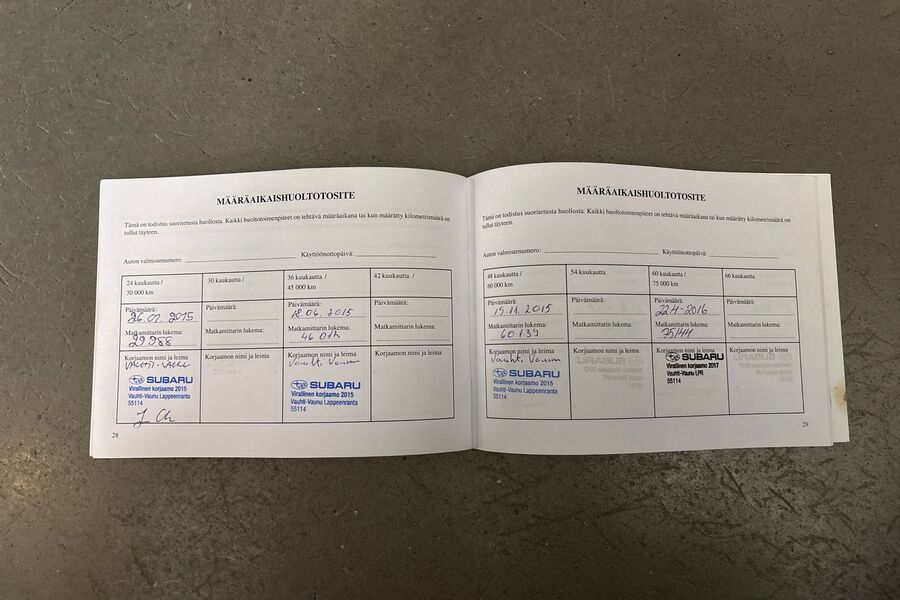 MÄÄRÄAIKAISHUOLTOTOSITE
Tämä on todistus suoritetusta huollosta. Kaikki huoltotoimenpiteet on tehtävä määräaikana tai kun määrätty kilometrimäärä on
tullut täyteen.
Auton valmistenumero: Käyttöönottopäivä:
24 kuukautta / 30 kuukautta / 36 kuukautta / 42 kuukautta /
30 000 km 45 000 km
Päivämäärä: Päivämäärä: Päivämäärä: Päivämäärä:
26.01.2015 18.06.2015
Matkamittarin lukema: Matkamittarin lukema: Matkamittarin lukema: Matkamittarin lukema:
29.988
Korjaamon nimi ja leima Korjaamon nimi ja leima Korjaamon nimi ja leima Korjaamon nimi ja leima
SUBARU SUBARU
Virallinen korjaamo 2015 Virallinen korjaamo 2015
Vauhti-Vaunu Lappeenranta Vauhti-Vaunu Lappeenranta
55114 55114
28
MÄÄRÄAIKAISHUOLTOTOSITE
Tämä on todistus suoritetusta huollosta. Kaikki huoltotoimenpiteet on tehtävä määräaikana tai kun määrätty kilometrimäärä on
tullut täyteen.
Auton valmistenumero: Käyttöönottopäivä:
48 kuukautta / 54 kuukautta 60 kuukautta / 66 kuukautta
60 000 km 75 000 km
Päivämäärä: Päivämäärä: Päivämäärä: Päivämäärä:
19.11.2015
Matkamittarin lukema: Matkamittarin lukema: Matkamittarin lukema: Matkamittarin lukema:
60139 75144
Korjaamon nimi ja leima Korjaamon nimi ja leima Korjaamon nimi ja leima Korjaamon nimi ja leima
Vauhti-Vaunu
SUBARU SUBARU
Virallinen korjaamo 2015 Virallinen korjaamo 2017
Vauhti-Vaunu Lappeenranta Vauhti-Vaunu LPR
55114 55114
29